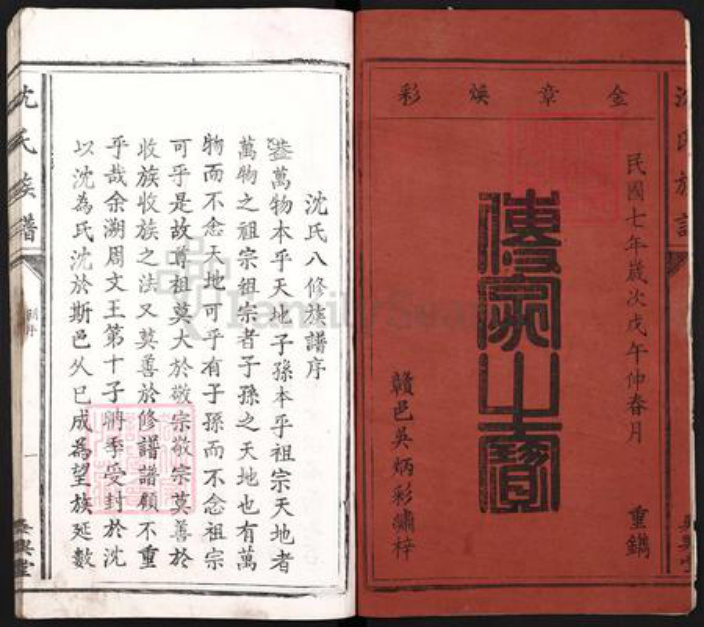 金章煥彩
民國七年歲次戊午仲春月　重鐫
傳家之寶
贛邑吳炳彩繡梓
沈氏族譜
沈氏八修族譜序
蓋萬物本乎天地子孫本乎祖宗天地者
萬物之祖宗祖宗者子孫之天地也有萬
物而不念天地可乎有子孫而不念祖宗
可乎是故尊祖莫大於敬宗敬宗莫善於
收族收族之法又莫善於修譜譜顧不重
乎哉余溯周文王第十子聃季受封於沈
以沈為氏沈於斯邑久已成為望族延數
沈氏族譜
一